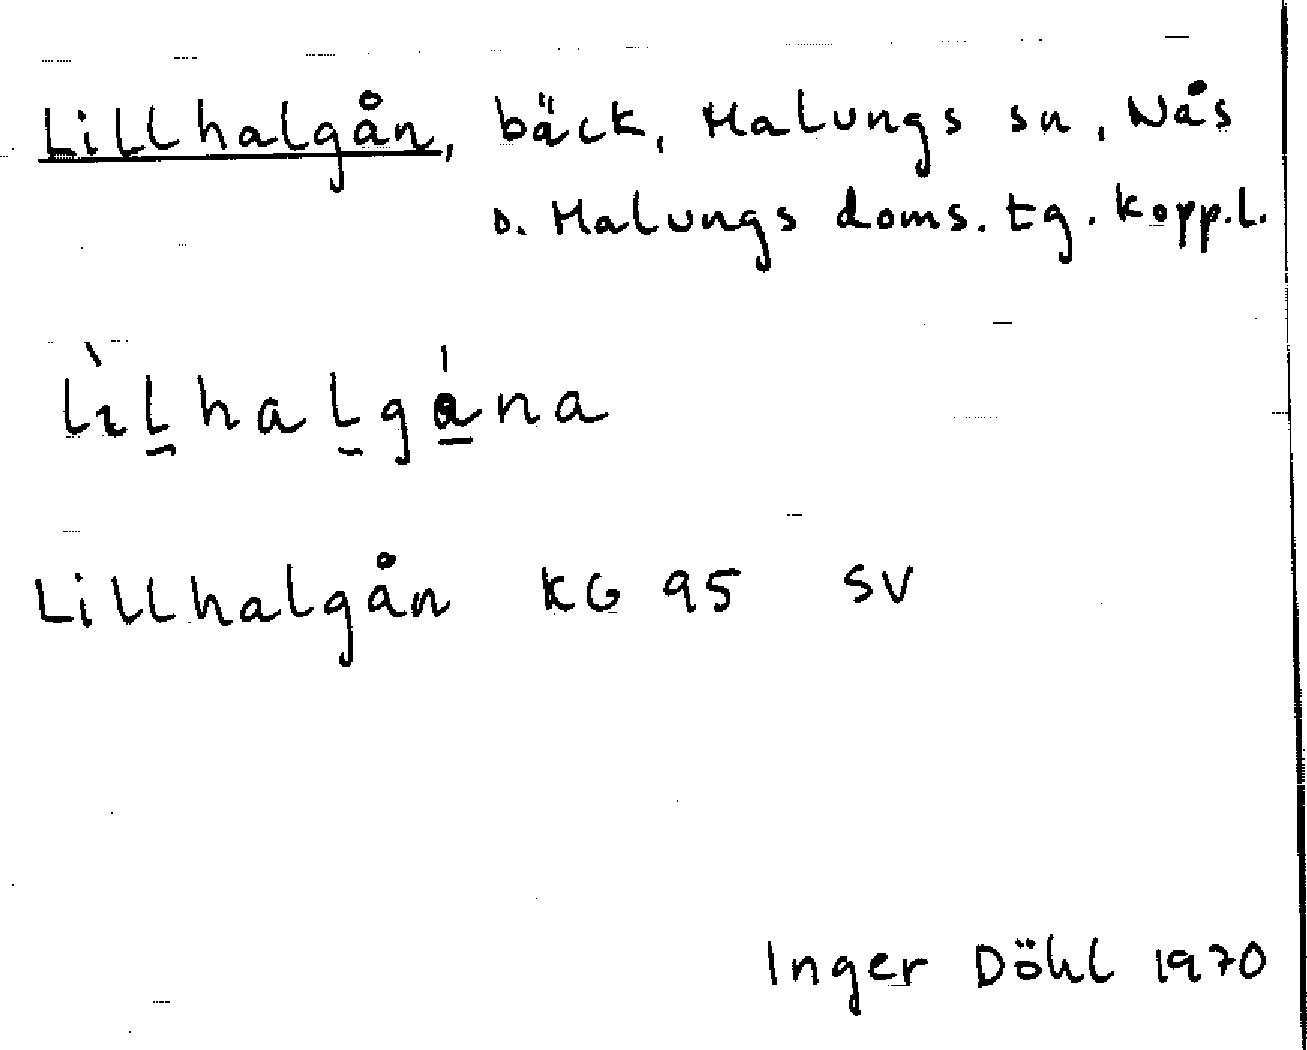 Lillhalgån, bäck, Malungs sn, Nås
o. Malungs doms. tg. Kopp.l.
lɩ̀l̠hal̠gá̠na
Lillhalgån KG 95 SV
Inger Döhl 1970